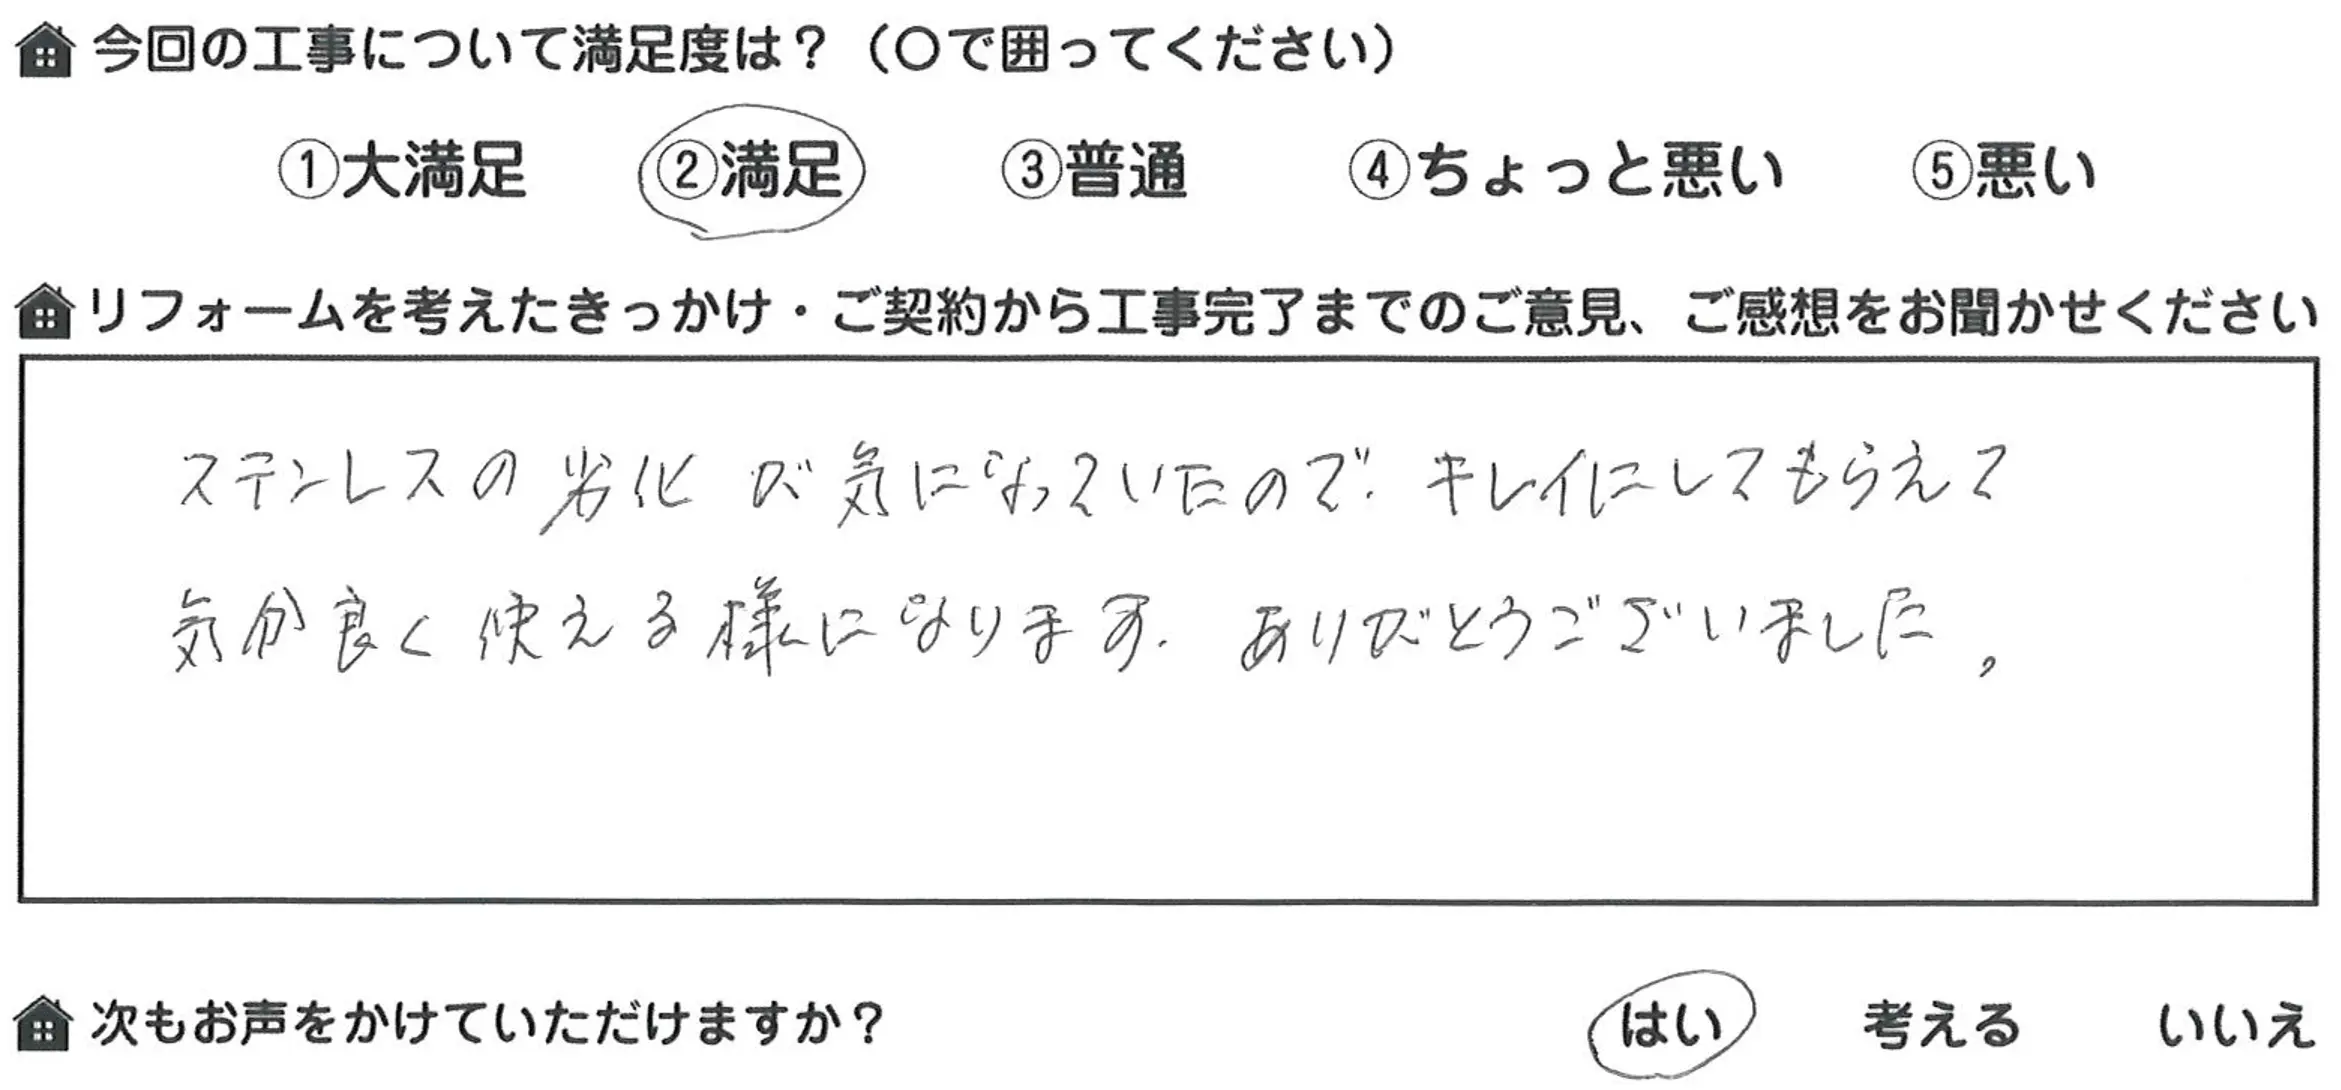 今回の工事について満足度は？（○で囲ってください）
①大満足 ②満足 ③普通 ④ちょっと悪い ⑤悪い
リフォームを考えたきっかけ・ご契約から工事完了までのご意見、ご感想をお聞かせください
ステンレスの劣化が気になっていたので、キレイにしてもらえて
気分良く使える様になります。ありがとうございました。
次もお声をかけていただけますか？ はい 考える いいえ